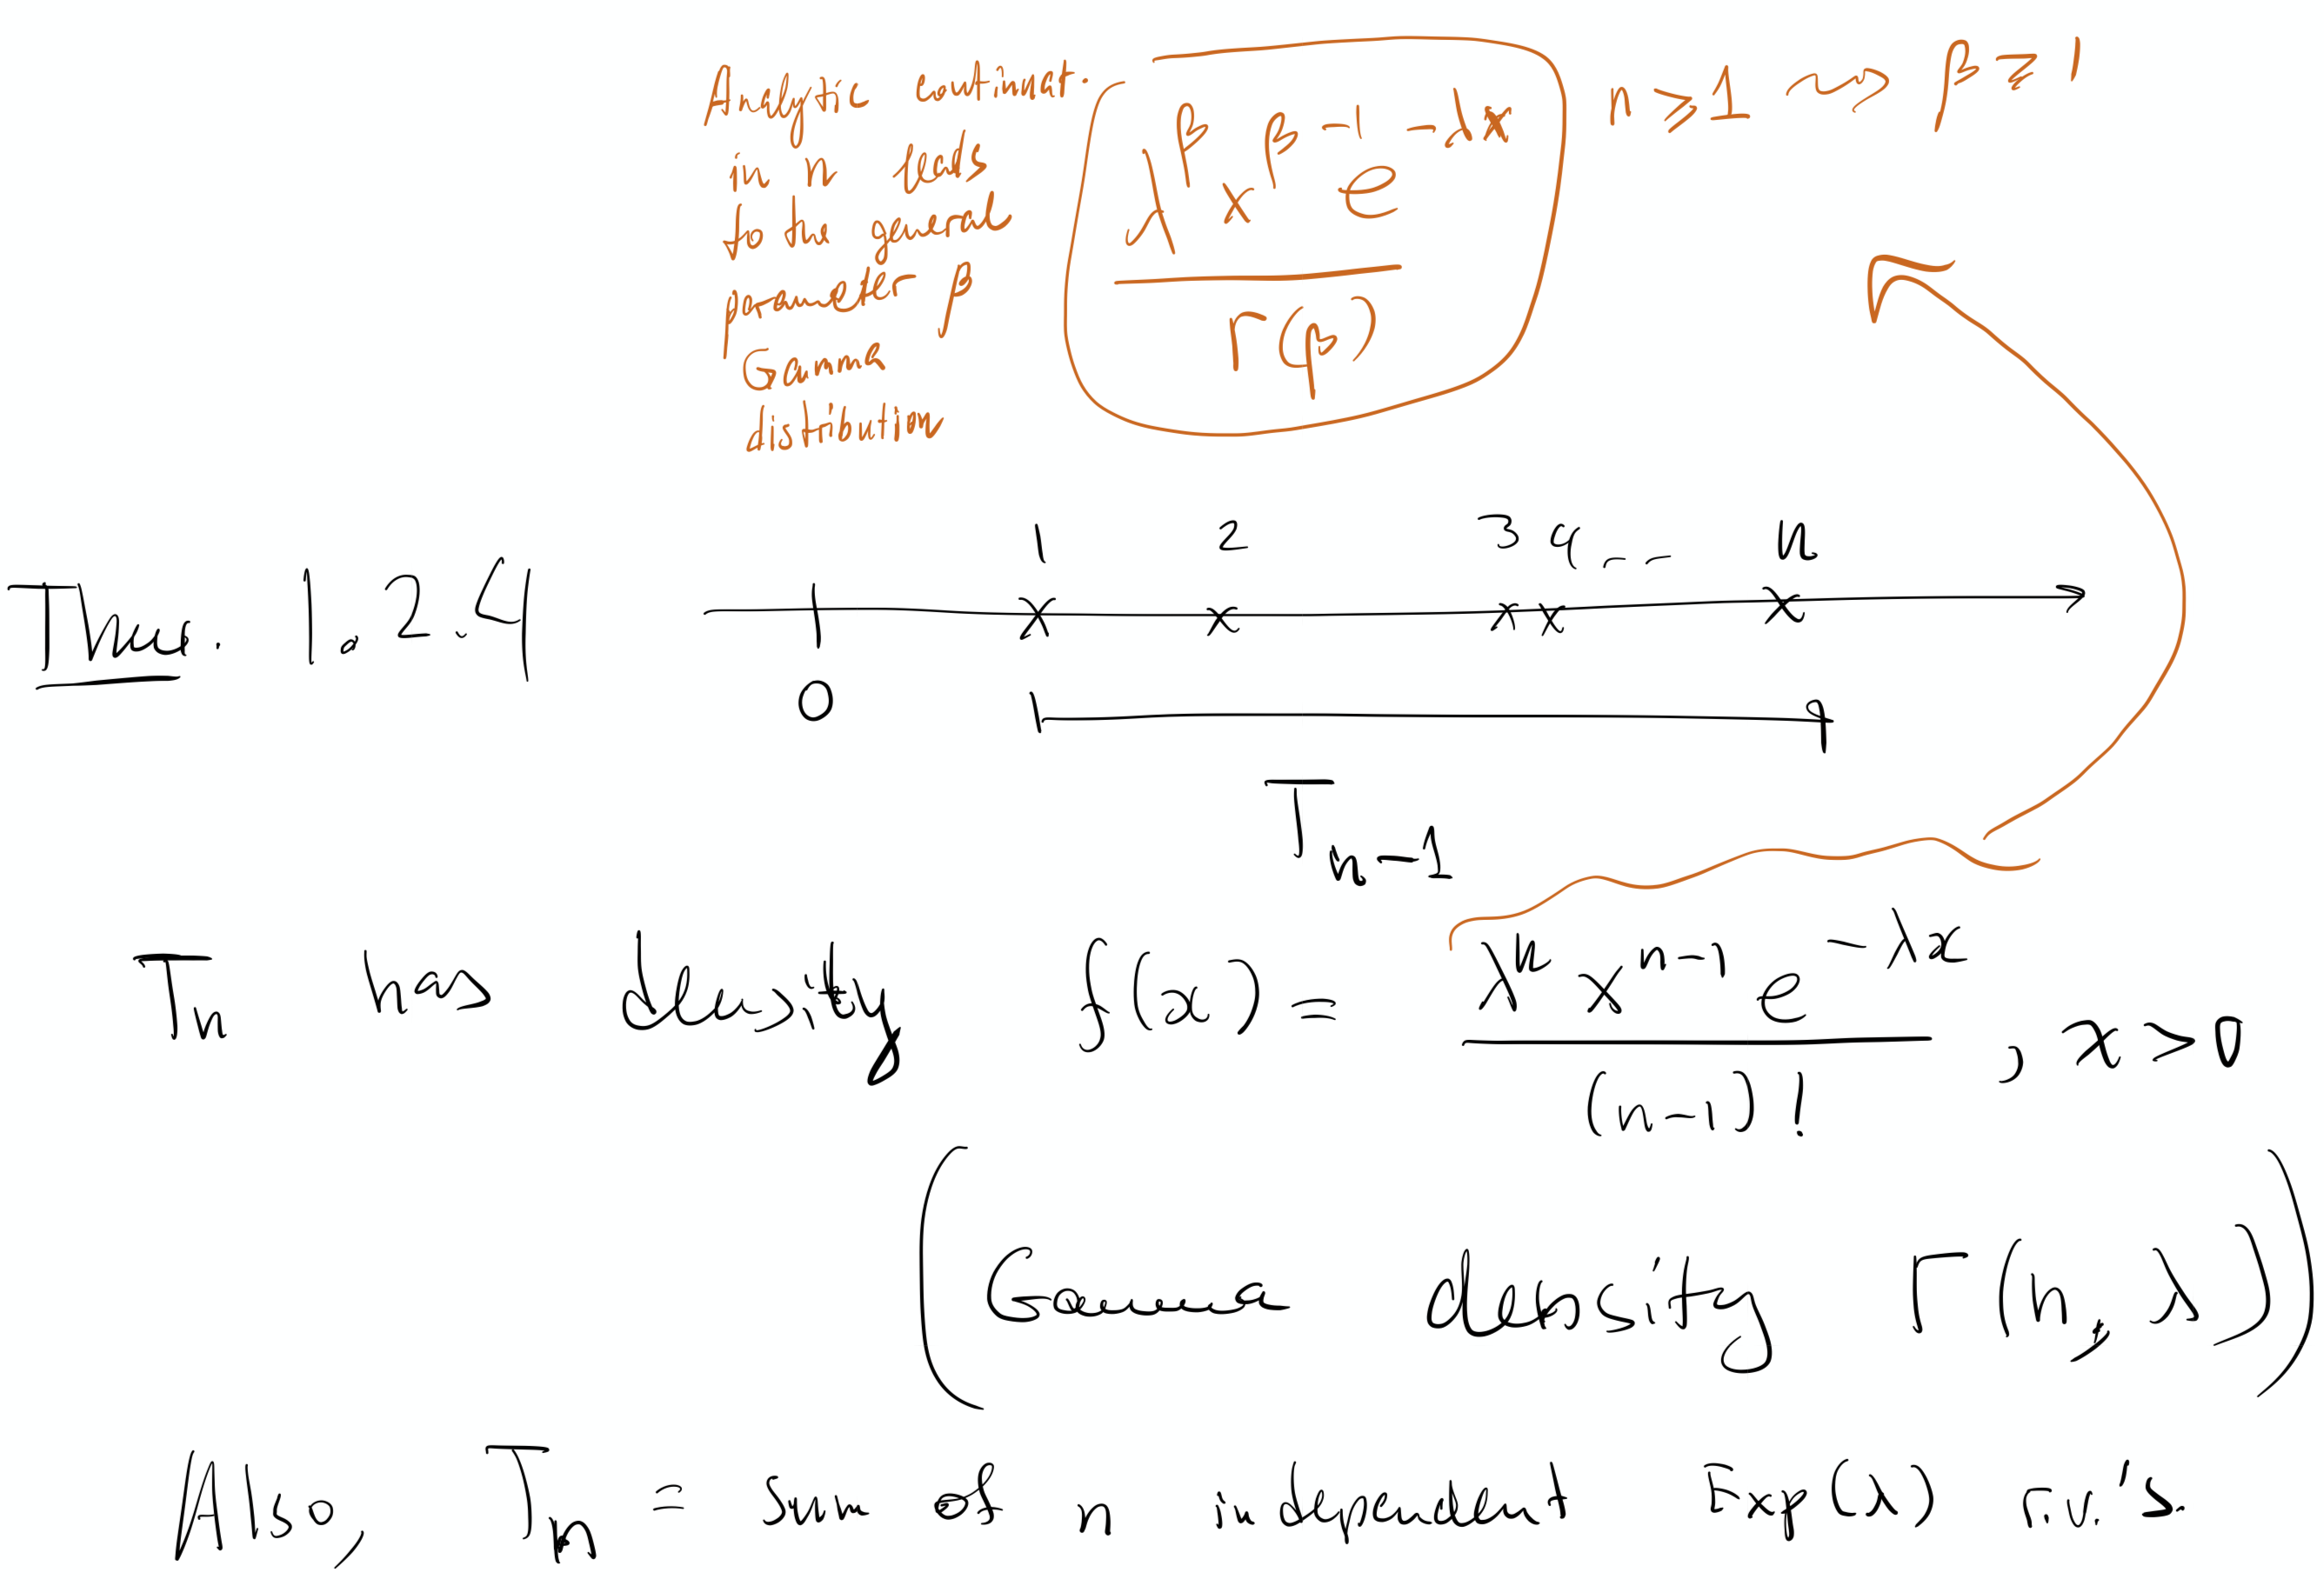 Analytic continuat.
in n leads
to the general
parameter β
Gamma
distribution
λ^β x^(β-1) e^(-λx)
Γ(β)
n ⩾ 1 ⇝ β ⩾ 1
1 2 3 4 -- n
Thm. 1.2.4
0
T_{n-1}
T_n has density f(x) = λ^n x^{n-1} e^{-λx} / (n-1)! , x > 0
(Gamma density Γ(n, λ))
Also, T_n = sum of n independent Exp(λ) r.v.'s.